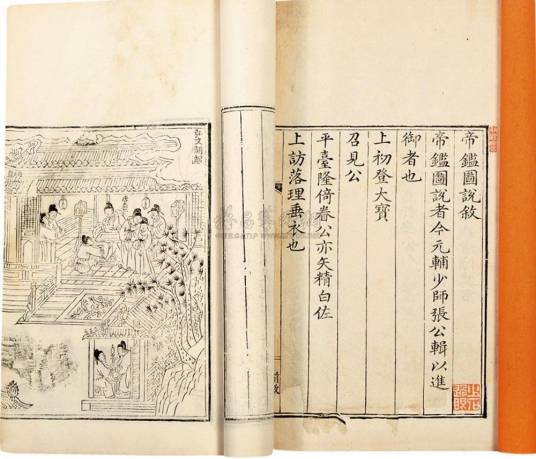 帝鑑圖說敘
帝鑑圖說者今元輔少師張公輯以進
御者也
上初登大寶
召見公
平臺隆倚眷公亦矢精白佐
上訪落理垂衣也